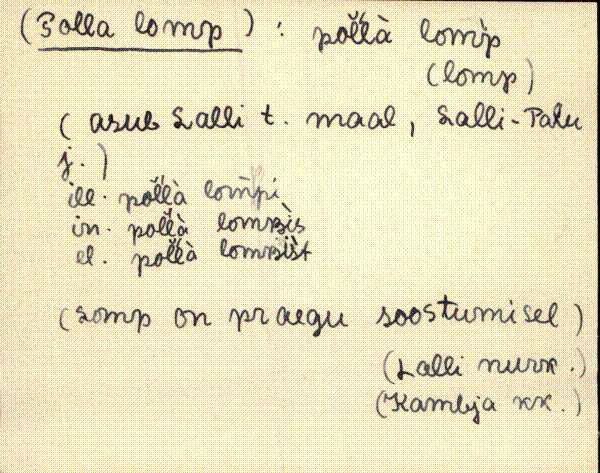 (Polla lomp) : pol̆l̆à lom̀p
(lomp)
( asub Lalli t. maal, Lalli-Palu
j.)
ill. pol̆l̆à lom̆pi
in. pol̆l̆à lompìs
el. pol̆l̆à lompìst
(Lomp on praegu soostumisel)
(Lalli nurk.)
(Kambja kk.)